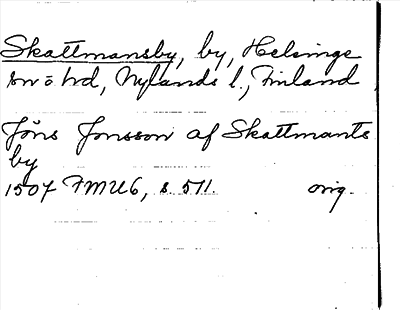 Skattmansby, by, Helsinge
sn o hd, Nylands l., Finland
Jöns Jonsson af Skattmants
by
1507 FMU6, s. 511. orig.